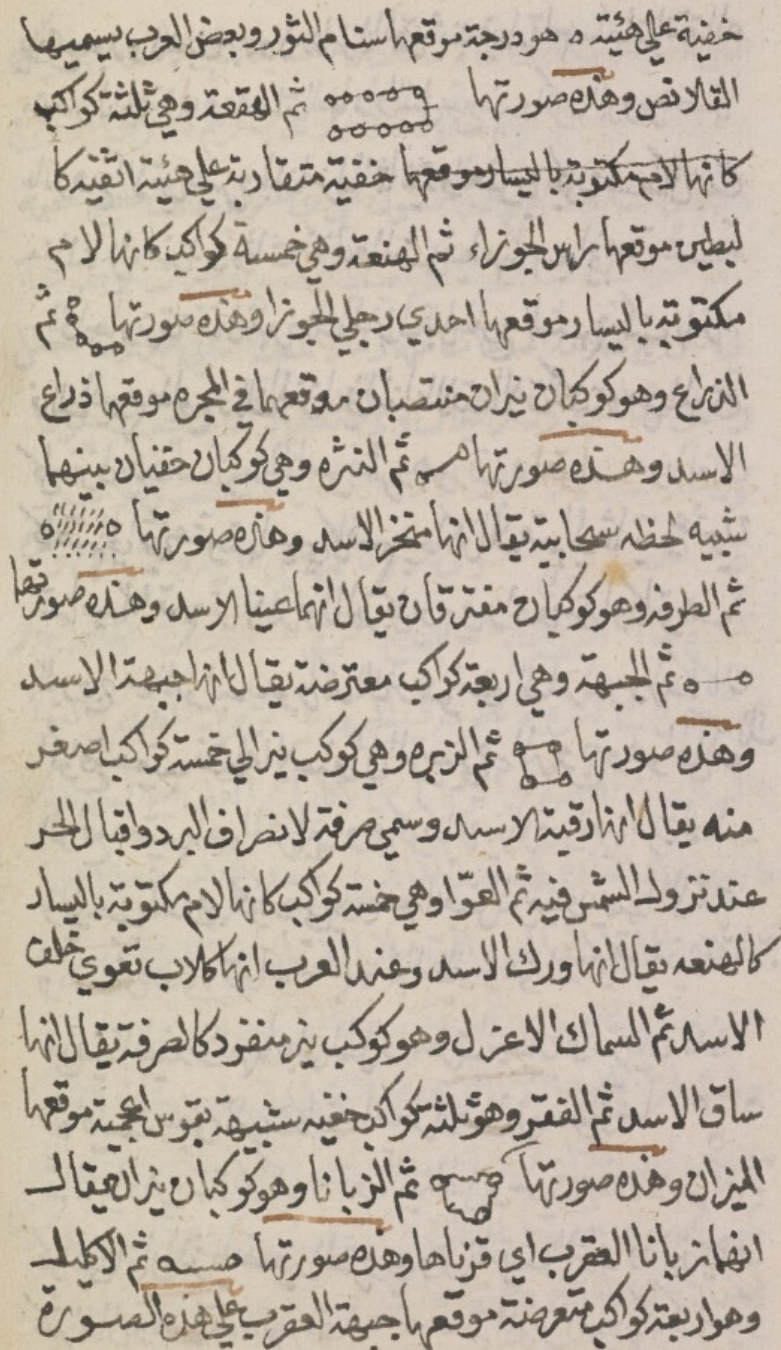 خفية على هيئة ه هو درجة موقعها سنام الثور وبعض العرب يسميها
القلائص وهذه صورتها ثم الهقعة وهي ثلثة كواكب
كانها لام مكتوبة باليسار موقعها خفية متقاربة على هيئة اثفية كا
لبطين موقعها راس الجوزاء ثم الهنعة وهي خمسة كواكب كانها لام
مكتوبة باليسار موقعها احدي رجلي الجوزا وهذه صورتها ثم
الذراع وهو كوكبان نيران منتصبان موقعهما في المجره موقعها ذراع
الاسد وهذه صورتها ثم النثره وهي كوكبان خفيان بينهما
شبيه لحظه سحابية يقال انها منخر الاسد وهذه صورتها
ثم الطرفه وهو كوكبان مفترقان يقال انهما عينا الاسد وهذه صورتها
ثم الجبهة وهي اربعة كواكب معترضة يقال انها جبهة الاسد
وهذه صورتها ثم الزبره وهي كوكب نير الي خمسة كواكب اصغر
منه يقال انها رقبة الاسد وسمي صرفة لانصراف البرد واقبال الحر
عند نزول الشمس فيه ثم العوّا وهي خمسة كواكب كانها لام مكتوبة باليسار
كالهنعه يقال انها ورك الاسد وعند العرب انها كلاب تعوي خلف
الاسد ثم السماك الاعزل وهو كوكب نير منفرد كالصرفة يقال انها
ساق الاسد ثم الغفر وهو ثلثة كواكب خفيه شبيهة بقوس اعجمية موقعها
الميزان وهذه صورتها ثم الزبانا وهو كوكبان نيران يقال
انهما زبانا العقرب اي قرناها وهذه صورتها ثم الاكليل
وهو اربعة كواكب متعرضة موقعها جبهة العقرب علي هذه الصورة